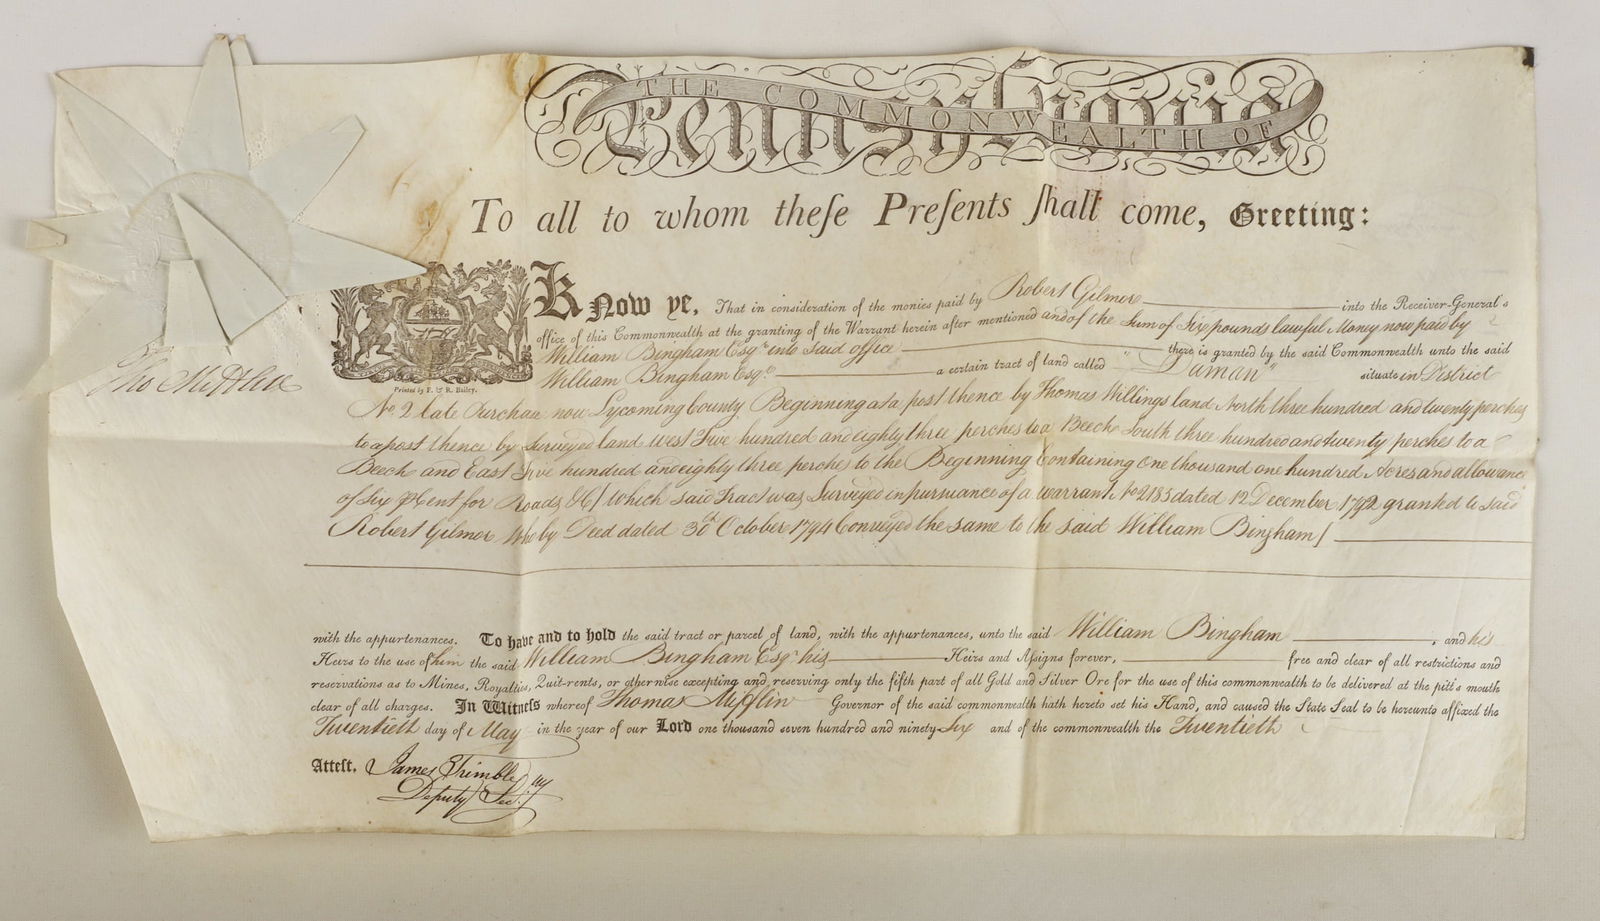 THE COMMONWEALTH OF
Pennsylvania
To all to whom theſe Preſents ſhall come, Greeting:
Know ye, That in consideration of the monies paid by Robert Gilmore into the Receiver-General's
office of this Commonwealth at the granting of the Warrant herein after mentioned and of the Sum of Six pounds lawful Money now paid by
William Bingham Esqr. into said office there is granted by the said Commonwealth unto the said
William Bingham Esqr. a certain tract of land called "Daman" situate in District
No. 2 late Purchase now Lycoming County Beginning at a post thence by Thomas Willings land North three hundred and twenty perches
to a post thence by Surveyed land West Five hundred and eighty three perches to a Beech South three hundred and twenty perches to a
Beech and East Five hundred and eighty three perches to the Beginning Containing One thousand one hundred Acres and allowance
of Six ⅌ Cent for Roads &c/ which said Tract was Surveyed in pursuance of a warrant No. 2185 dated 12 December 1792 granted to said
Robert Gilmore Who by Deed dated 30th October 1794 Conveyed the same to the said William Bingham/
with the appurtenances. To have and to hold the said tract or parcel of land, with the appurtenances, unto the said William Bingham, and his
Heirs to the use of him the said William Bingham Esqr. his Heirs and Aſsigns forever, free and clear of all restrictions and
reservations as to Mines, Royalties, Quit-rents, or otherwise excepting and reserving only the fifth part of all Gold and Silver Ore for the use of this commonwealth to be delivered at the pitt's mouth
clear of all charges. In Witneſs whereof Thomas Mifflin Governor of the said commonwealth hath hereto set his Hand, and caused the State Seal to be hereunto affixed the
Twentieth day of May in the year of our Lord one thousand seven hundred and ninety-Six and of the commonwealth the Twentieth
Atteſt. James Trimble
Deputy Secy.
Printed by F. & R. Bailey.
Tho Mifflin